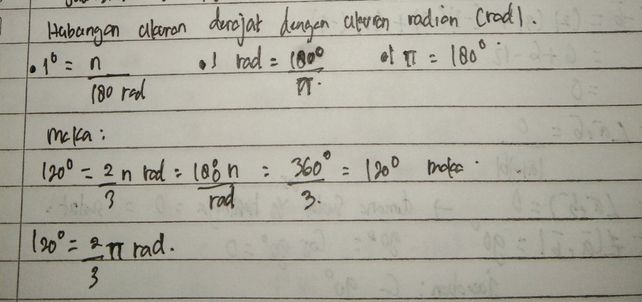 Hubungan ukuran derajat dengan ukuran radian (rad).
• 1° = n/180 rad • 1 rad = 180°/π. • 1 π = 180°
maka:
120° = 2/3 n rad = 180° n/rad = 360°/3. = 120° maka
120° = 2/3 π rad.